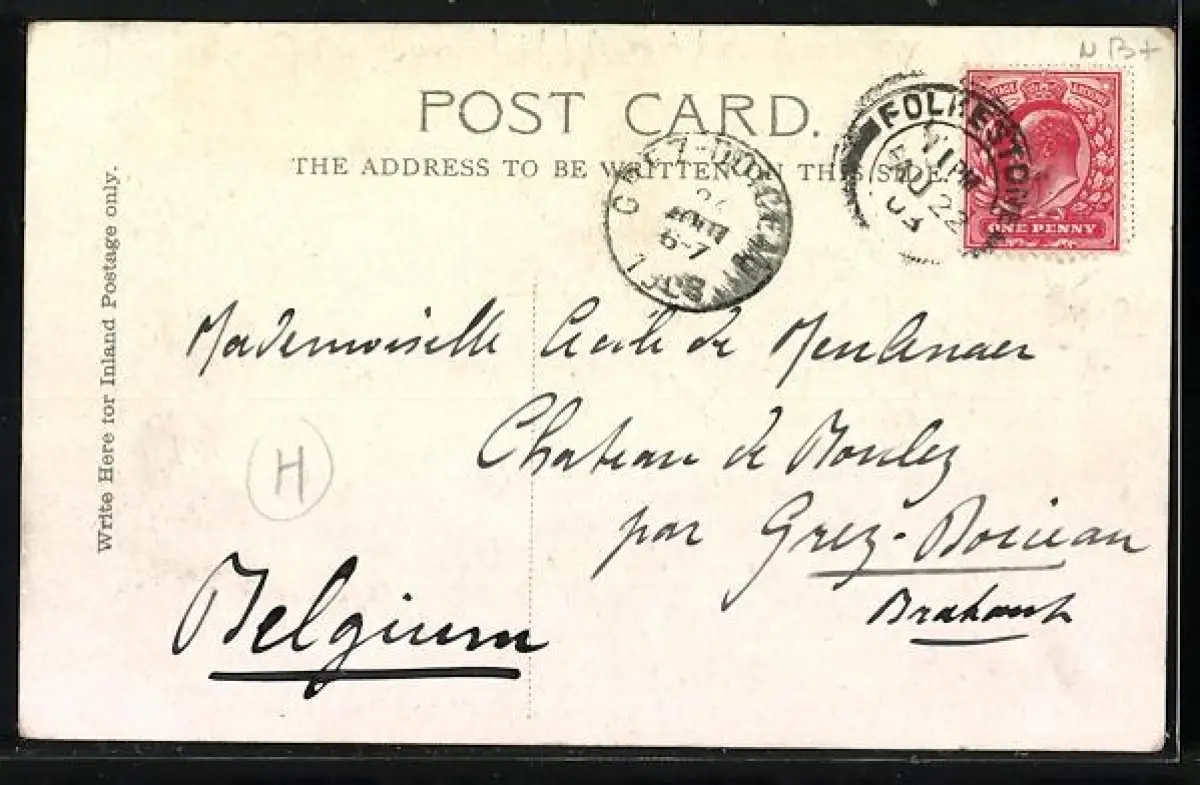 N B+
POST CARD.
THE ADDRESS TO BE WRITTEN ON THIS SIDE.
FOLKESTONE
11 PM
AU 22
03
POSTAGE REVENUE
ONE PENNY
GREZ-DOICEAU
AOUT
6-7
Write Here for Inland Postage only.
Mademoiselle Cécile de Meulenaer
Chateau de
par Grez-Doiceau
Brabant
H
Belgium